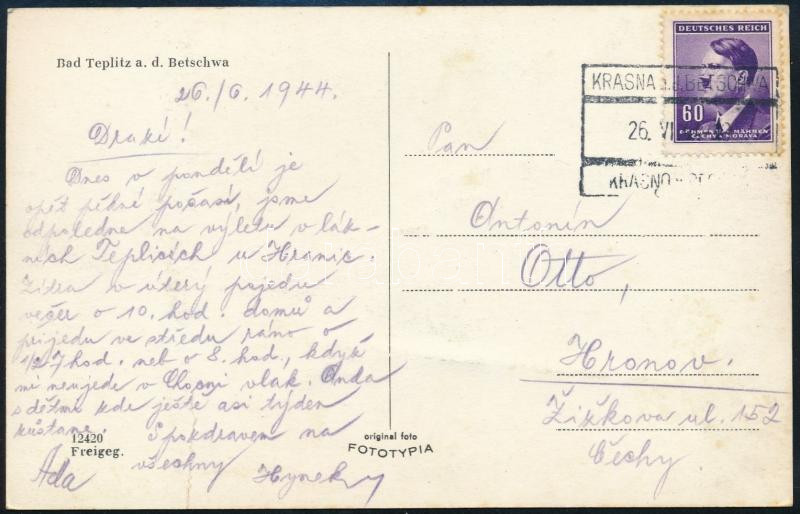 Bad Teplitz a. d. Betschwa
26./6. 1944.
Drazí!
Dnes v pondělí je
opět pěkné počasí, jsme
odpoledne na výletu v láz-
ních Teplicích u Hranic.
Zítra v úterý pojedu
večer o 10. hod. domů a
přijedu ve středu ráno o
1/2 7 hod. neb o 8. hod., když
mi neujede v Chocni vlak.
s dětmi zde ještě asi týden
zůstane. S pozdravem na
všechny
Ada Hynek
12420
Freigeg.
original foto
FOTOTYPIA
DEUTSCHES REICH
60
BÖHMEN u. MÄHREN
ČECHY a MORAVA
KRASNA a.d.BETSCHWA
26. VI
KRASNO
Pan
Antonín
Otto,
Hronov.
Žižkova ul. 152
Čechy.